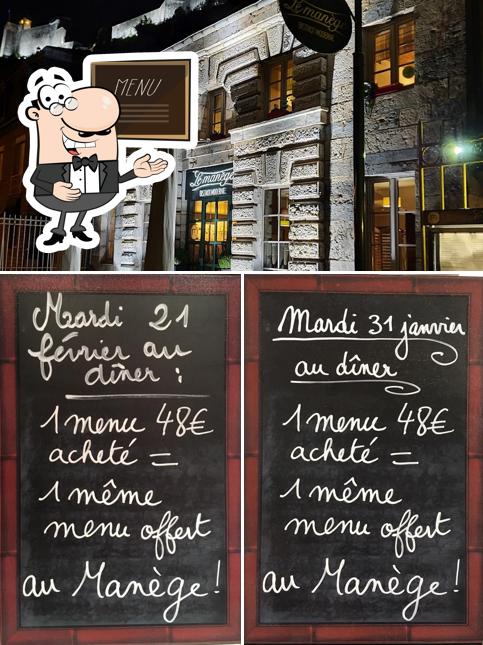 Le manège
BISTROT MODERNE
MENU
Le manège
BISTROT MODERNE
Mardi 21
février au
dîner :
1 menu 48€
acheté =
1 même
menu offert
au Manège !
Mardi 31 janvier
au dîner
1 menu 48€
acheté =
1 même
menu offert
au Manège !